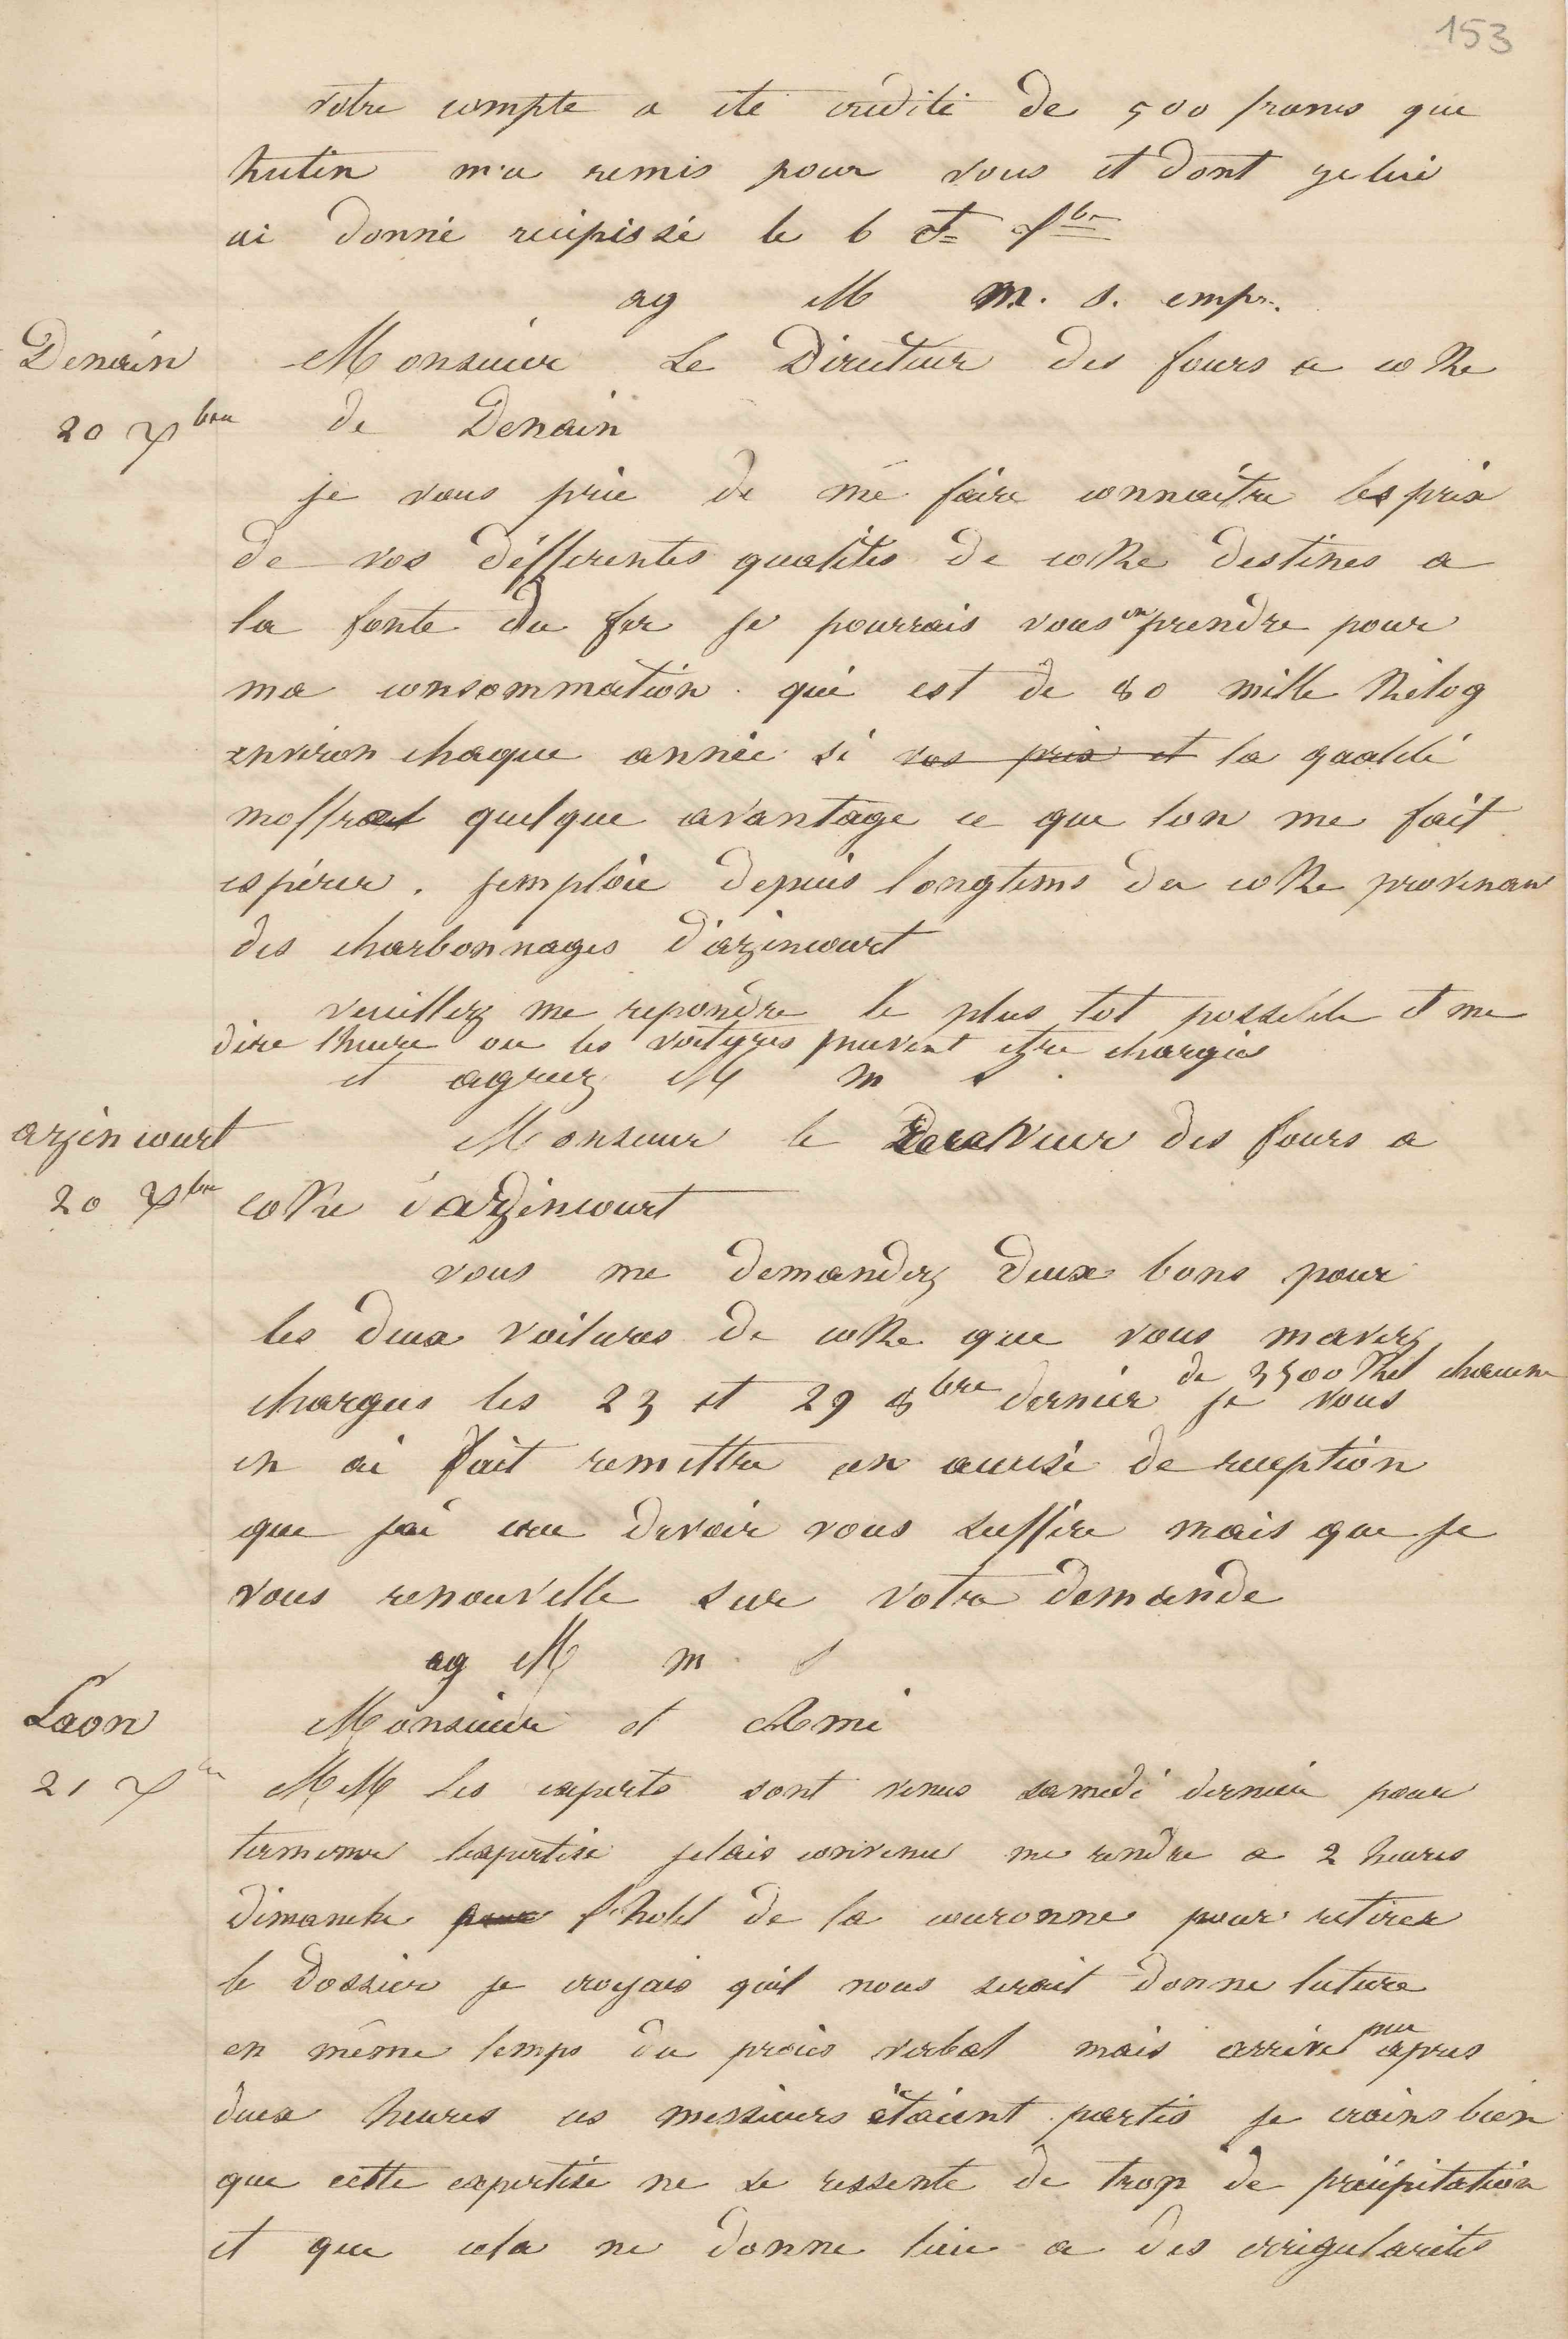 153
votre compte a ete credité de 500 francs que
hutin m'a remis pour vous et dont je lui
ai donné recipissé le 6 Ct
ag M m. s. empr.
Denain Monsieur Le Directeur des fours a coke
20 Xbre de Denain
je vous prie de me faire connaitre les prix
de vos différentes qualités de coke destines a
la fonte du fer je pourrais vous en prendre pour
ma consommation qui est de 80 mille Kilog
environ chaque année si vos prix et la qualité
moffrait quelque avantage ce que lon me fait
espérer. jemploie depuis longtems du coke provenan
des charbonnages d'azincourt
veuillez me repondre le plus tot possible et me
dire lheure ou les voitures peuvent etre chargies
et agreez M m s.
azincourt Monsieur le Directeur des fours a
20 Xbre coke d'azincourt
vous me demandez deux bons pour
les deux voitures de coke que vous mavez
chargees les 23 et 29 8bre dernier de 3500 Kil chacune je vous
en ai fait remettre un accusé de reception
que jai cru devoir vous suffire mais que je
vous renouvelle sur votre demande
ag M m s
Laon Monsieur et Ami
21 Xbre MM les experts sont venus samedi dernier pour
terminer lexpertise jetais convenu me rendre a 2 heures
dimanche pour l'hotel de la couronne pour retirer
le dossier je croyais quil nous serait donne lecture
en même temps du procès verbal mais arrivé peu apres
deux heures ces messieurs étaient partis je crains bien
que cette expertise ne se ressente de trop de précipitation
et que cela ne donne lieu a des irrigularités